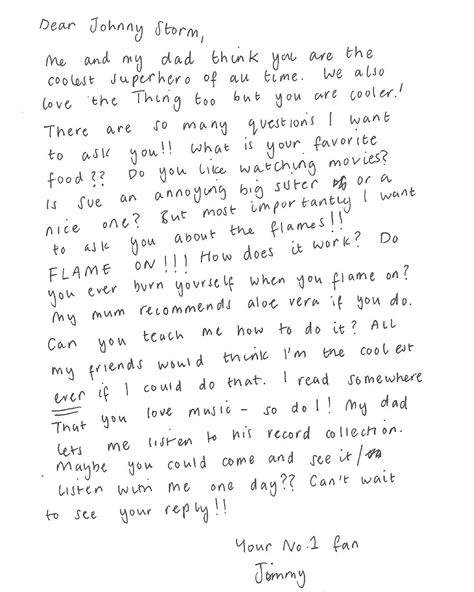 Dear Johnny Storm,
Me and my dad think you are the
coolest superhero of all time. We also
love the Thing too but you are cooler!
There are so many questions I want
to ask you!! What is your favorite
food?? Do you like watching movies?
Is Sue an annoying big sister or a
nice one? But most importantly I want
to ask you about the flames!!
FLAME ON!!! How does it work? Do
you ever burn yourself when you flame on?
My mum recommends aloe vera if you do.
Can you teach me how to do it? All
my friends would think I'm the coolest
ever if I could do that. I read somewhere
That you love music - so do I! My dad
lets me listen to his record collection.
Maybe you could come and see it/
listen with me one day?? Can't wait
to see your reply!!
Your No.1 fan
Jimmy